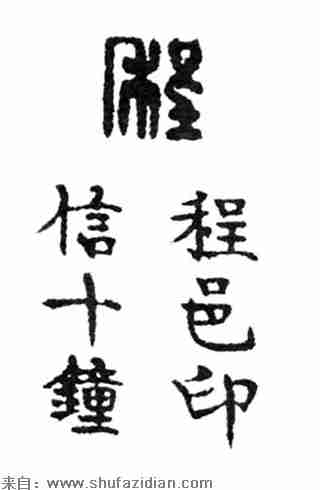 程
程邑印
信十鐘
来自：www.shufazidian.com